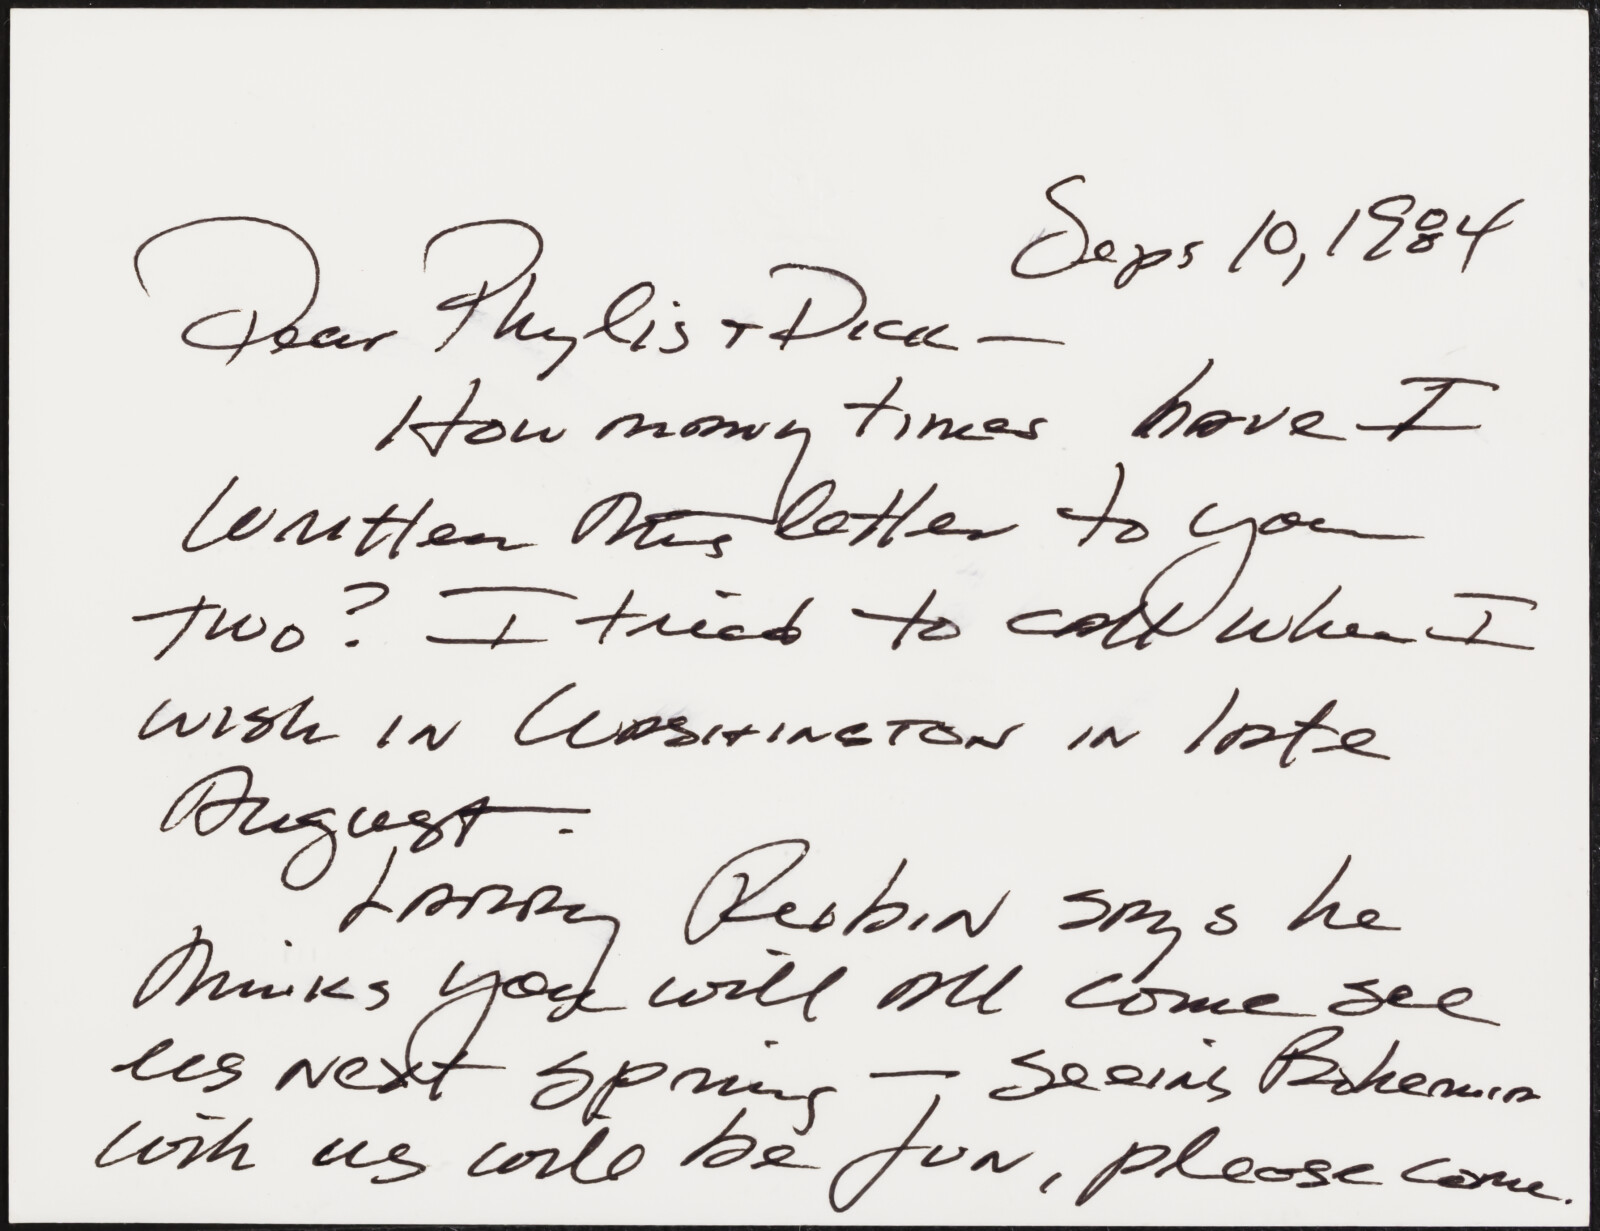 Sept 10, 1984
Dear Phylis + Dick —
How many times have I
written this letter to you
two? I tried to call when I
wish in Washington in late
August.
Larry Reubin says he
thinks you will all come see
us next spring — seeing Bohemia
with us will be fun, please come.